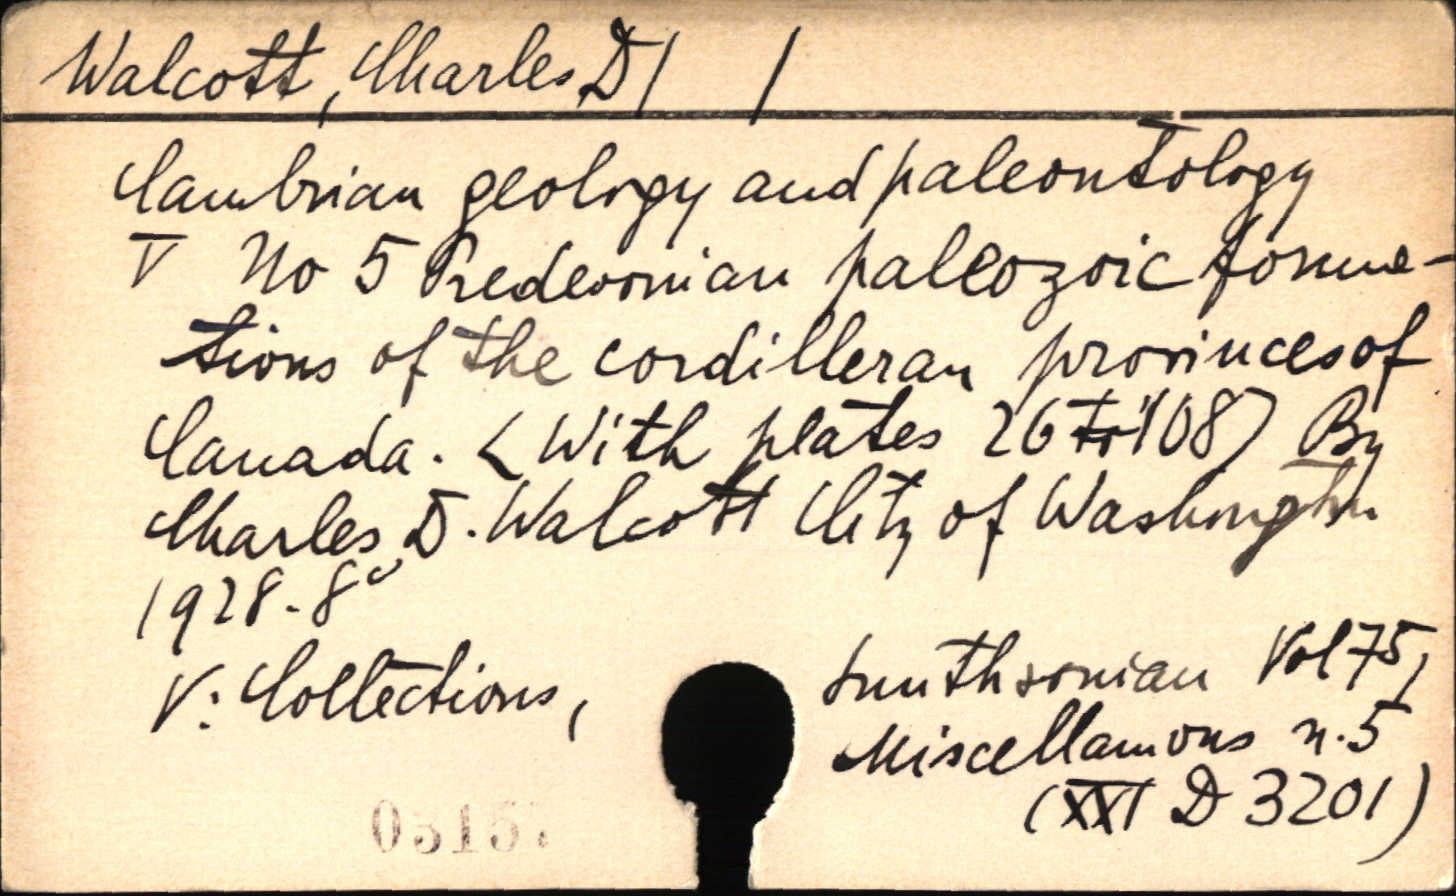 Walcott, Charles D / /
Cambrian geology and paleontology
V No 5 Predevonian paleozoic forma-
tions of the cordilleran provinces of
Canada. (With plates 26 to 108) By
Charles D. Walcott City of Washington
1928. 8°
V: Collections, Smithsonian Vol 75,
Miscellamous n. 5
(XXI D 3201)